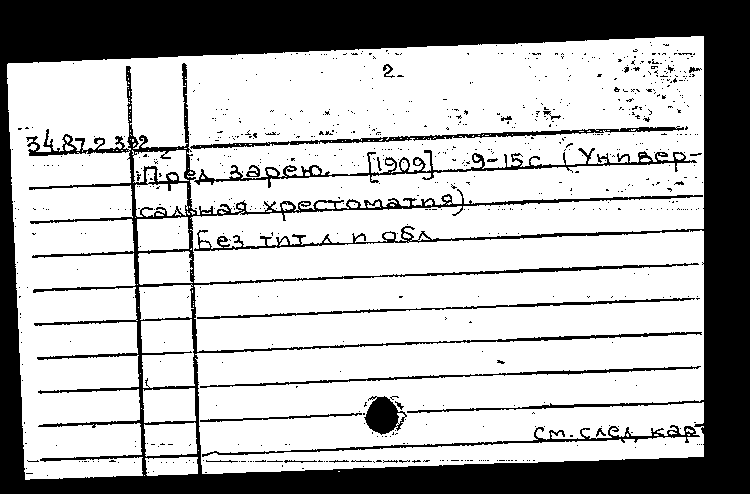 2
34.87.2.392
2
Пред зарею. [1909] 9-15 с (Универ-
сальная хрестоматия).
Без тит. л. и обл.
см. след. карт